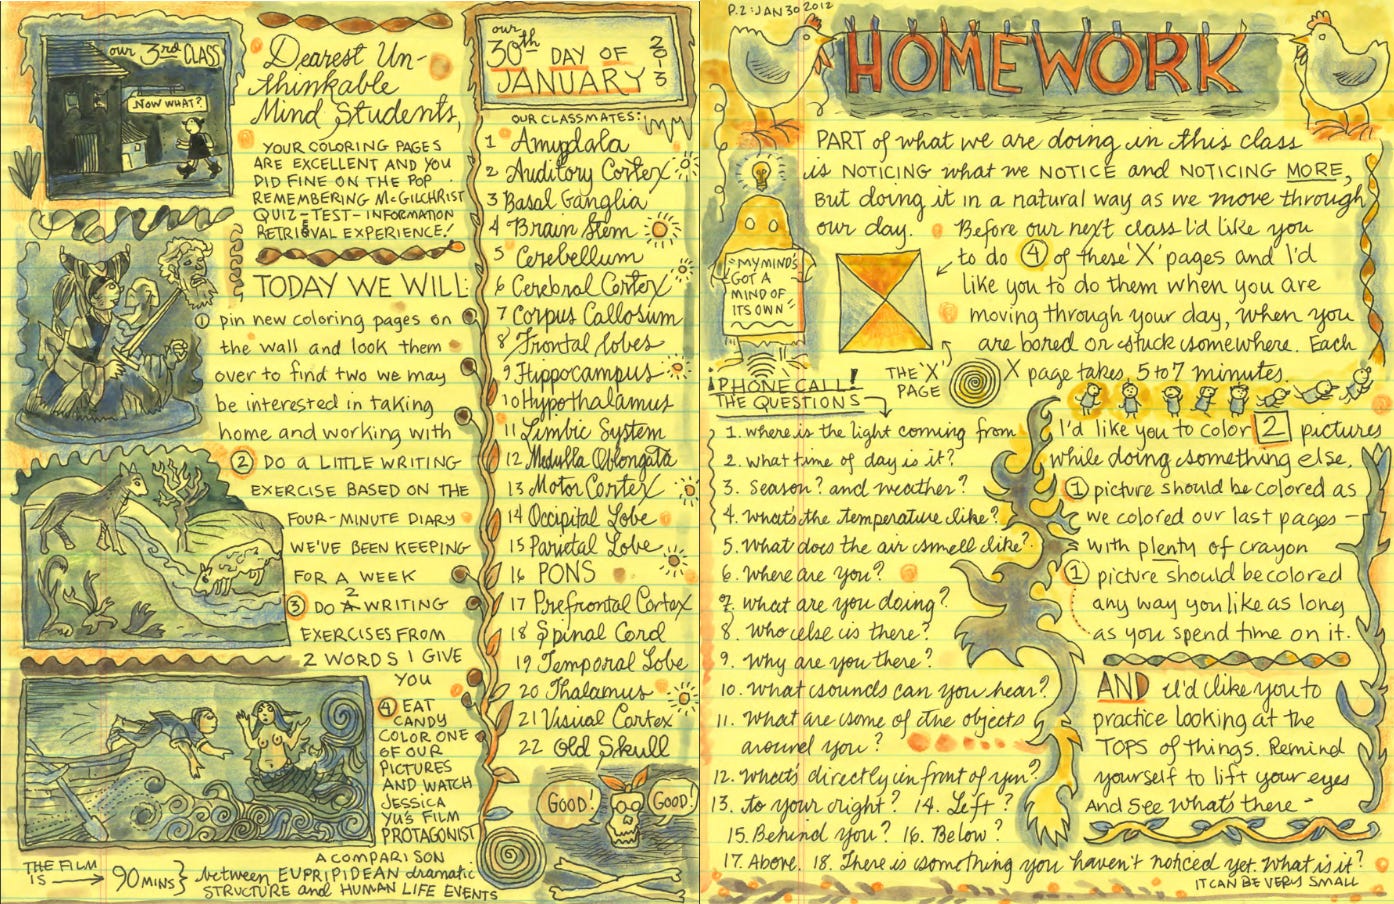 our 3rd CLASS
NOW WHAT?
Dearest Un-
thinkable
Mind Students,
YOUR COLORING PAGES
ARE EXCELLENT AND YOU
DID FINE ON THE POP
REMEMBERING McGILCHRIST
QUIZ-TEST-INFORMATION
RETRIEVAL EXPERIENCE!
TODAY WE WILL:
① pin new coloring pages on
the wall and look them
over to find two we may
be interested in taking
home and working with
② DO A LITTLE WRITING
EXERCISE BASED ON THE
FOUR-MINUTE DIARY
WE'VE BEEN KEEPING
FOR A WEEK
③ DO A 2 WRITING
EXERCISES FROM
2 WORDS I GIVE
YOU
④ EAT
CANDY
COLOR ONE
OF OUR
PICTURES
AND WATCH
JESSICA
YU'S FILM
PROTAGONIST
A COMPARISON
THE FILM
IS → 90 MINS } between EURPIPIDEAN dramatic
STRUCTURE and HUMAN LIFE EVENTS
our
30th DAY OF
JANUARY 2013
OUR CLASSMATES:
1 Amygdala
2 Auditory Cortex
3 Basal Ganglia
4 Brain Stem
5 Cerebellum
6 Cerebral Cortex
7 Corpus Callosum
8 Frontal Lobes
9 Hippocampus
10 Hypothalamus
11 Limbic System
12 Medulla Oblongata
13 Motor Cortex
14 Occipital Lobe
15 Parietal Lobe
16 PONS
17 Prefrontal Cortex
18 Spinal Cord
19 Temporal Lobe
20 Thalamus
21 Visual Cortex
22 Old Skull
GOOD! GOOD!
P.2: JAN 30 2012
HOMEWORK
PART of what we are doing in this class
is NOTICING what we NOTICE and NOTICING MORE,
But doing it in a natural way as we move through
our day. Before our next class I'd like you
to do ④ of these 'X' pages and I'd
like you to do them when you are
moving through your day, when you
are bored or stuck somewhere. Each
X page takes 5 to 7 minutes.
"MY MIND'S
GOT A
MIND OF
ITS OWN"
THE 'X'
PAGE
¡PHONE CALL!
THE QUESTIONS
1. where is the light coming from
2. what time of day is it?
3. Season? and weather?
4. what's the temperature like?
5. What does the air smell like?
6. Where are you?
7. what are you doing?
8. Who else is there?
9. Why are you there?
10. What sounds can you hear?
11. What are some of the objects
around you?
12. What's directly in front of you?
13. to your right? 14. Left?
15. Behind you? 16. Below?
17. Above. 18. There is something you haven't noticed yet. What is it?
IT CAN BE VERY SMALL
I'd like you to color 2 pictures
while doing something else.
① picture should be colored as
we colored our last pages—
with plenty of crayon
① picture should be colored
any way you like as long
as you spend time on it.
AND I'd like you to
practice looking at the
TOPS of things. Remind
yourself to lift your eyes
And see what's there-